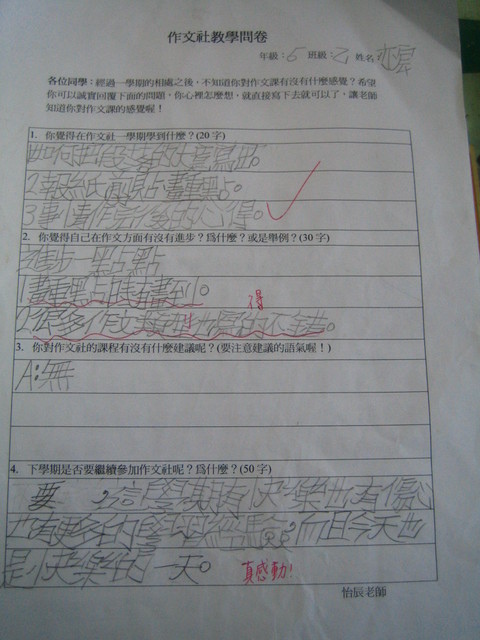 作文社教學問卷
年級：5 班級：乙 姓名
各位同學：經過一學期的相處之後，不知道你對作文課有沒有什麼感覺？希望
你可以誠實回覆下面的問題，你心裡怎麼想，就直接寫下去就可以了，讓老師
知道你對作文課的感覺喔！
1. 你覺得在作文社一學期學到什麼？(20字)
如何把段落的大意寫出。
2報紙式前點畫重點。
3事情作完後的心得。
2. 你覺得自己在作文方面有沒有進步？為什麼？或是舉例？(30字)
進步一點點
1畫重點時有畫到。
得
2很多作文類型也寫的不錯。
3. 你對作文社的課程有沒有什麼建議呢？(要注意建議的語氣喔！)
A:無
4. 下學期是否要繼續參加作文社呢？為什麼？(50字)
要，這學期有快樂也有傷心
也有更多的學習經驗，而且今天也
是快樂的一天。
真感動!
怡辰老師